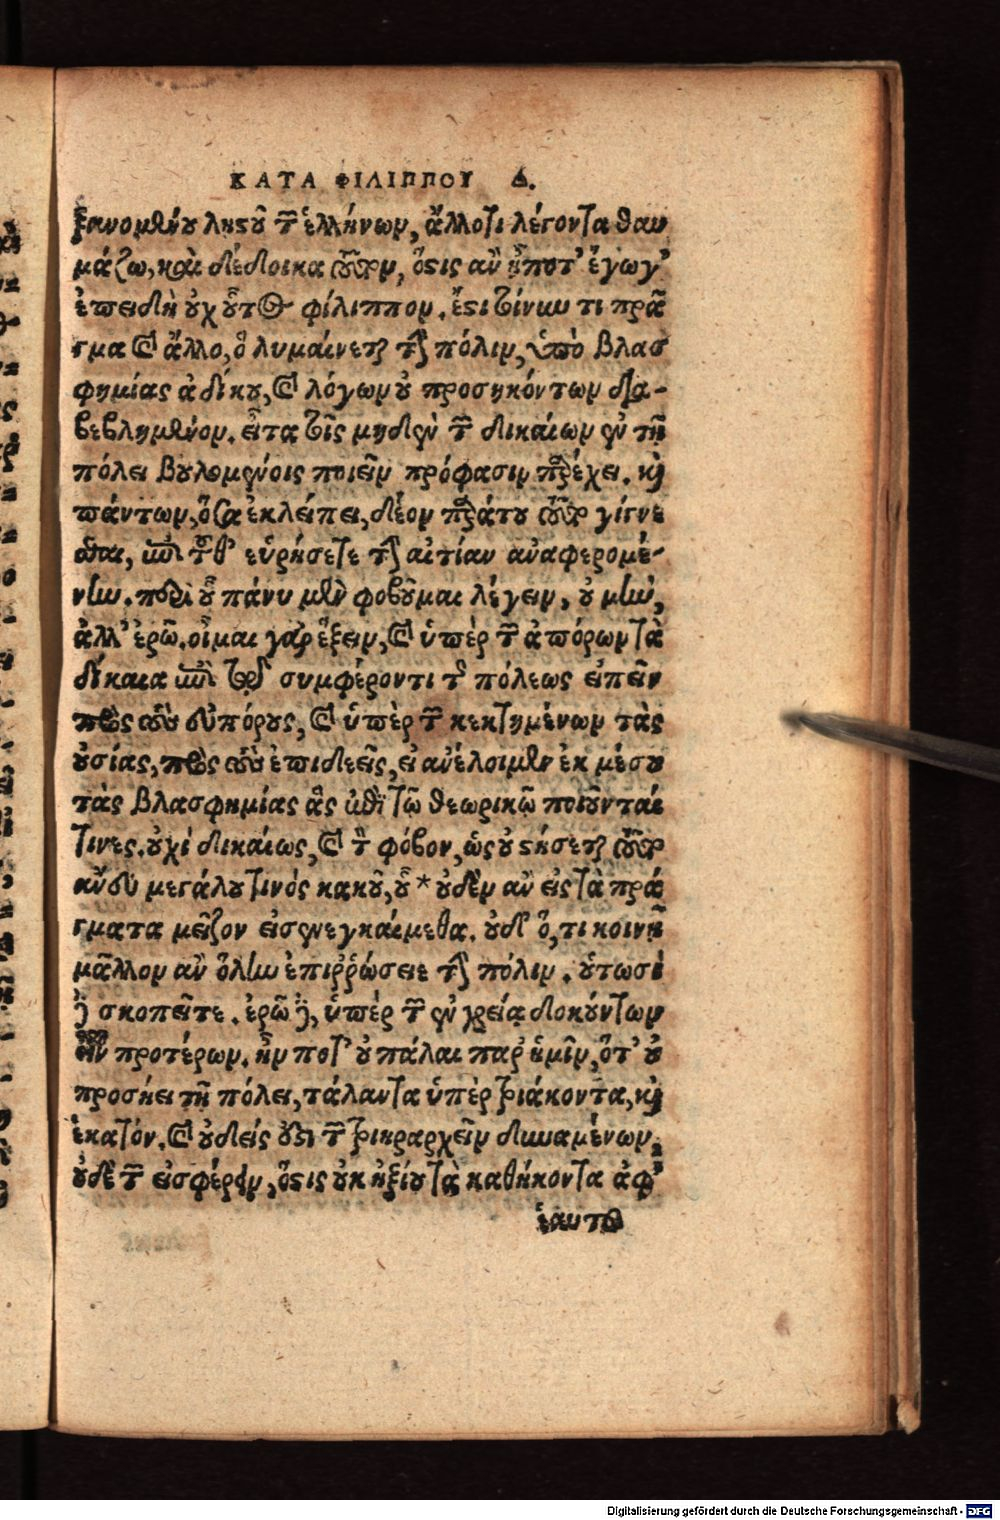 ΚΑΤΑ ΦΙΛΙΠΠΟΥ Δ.
ξανομένου ληστοῦ τῶν ἑλλήνων, ἄλλο τι λέγοντα θαυ
μάζω, καὶ δέδοικα τοῦτον, ὅστις ἂν ᾖ ποτ' ἔγωγ'
ἐπειδὴ οὐχ οὗτος φίλιππον. ἔστι τοίνυν τι πρᾶ
γμα καὶ ἄλλο, ὃ λυμαίνεται τὴν πόλιν, ὑπὸ βλασ
φημίας ἀδίκου, καὶ λόγων οὐ προσηκόντων δια-
βεβλημένον. εἶτα τοῖς μηδὲν τῶν δικαίων ἐν τῇ
πόλει βουλομένοις ποιεῖν πρόφασιν παρέχει. καὶ
πάντων, ὅσα ἐκλείπει, δέον παρά του τοῦτο γίγνε
σθαι, ἐπὶ τοῦθ' εὑρήσετε τὴν αἰτίαν ἀναφερομέ-
νην. περὶ οὗ πάνυ μὲν φοβοῦμαι λέγειν, οὐ μὴν,
ἀλλ' ἐρῶ. οἶμαι γὰρ ἕξειν, καὶ ὑπὲρ τῶν ἀπόρων τὰ
δίκαια ἐπὶ τῷ συμφέροντι τῆς πόλεως εἰπεῖν
πρὸς τοὺς εὐπόρους, καὶ ὑπὲρ τῶν κεκτημένων τὰς
οὐσίας, πρὸς τοὺς ἐπιδεεῖς, εἰ ἀνέλοιμεν ἐκ μέσου
τὰς βλασφημίας ἃς ἐπὶ τῷ θεωρικῷ ποιοῦνταί
τινες. οὐχὶ δικαίως, καὶ τὸν φόβον, ὡς οὐ στήσεται τοῦτο
ἄνευ μεγάλου τινὸς κακοῦ, οὗ * οὐδὲν ἂν εἰς τὰ πρά
γματα μεῖζον εἰσενεγκαίμεθα. οὐδ' ὅ, τι κοινῇ
μᾶλλον ἂν ὅλην ἐπιρρώσειε τὴν πόλιν. οὑτωσὶ
δὲ σκοπεῖτε. ἐρῶ δὲ, ὑπὲρ τῶν ἐν χρείᾳ δοκούντων
εἶναι προτέρων. ἦν ποτ' οὐ πάλαι παρ' ἡμῖν, ὅτ' οὐ
προσῄει τῇ πόλει, τάλαντα ὑπὲρ τριάκοντα, καὶ
ἑκατόν. καὶ οὐδεὶς ἔστι τῶν τριηραρχεῖν δυναμένων,
οὐδὲ τῶν εἰσφέρειν, ὅστις οὐκ ἠξίου τὰ καθήκοντα ἀφ'
ἑαυτοῦ
Digitalisierung gefördert durch die Deutsche Forschungsgemeinschaft - DFG